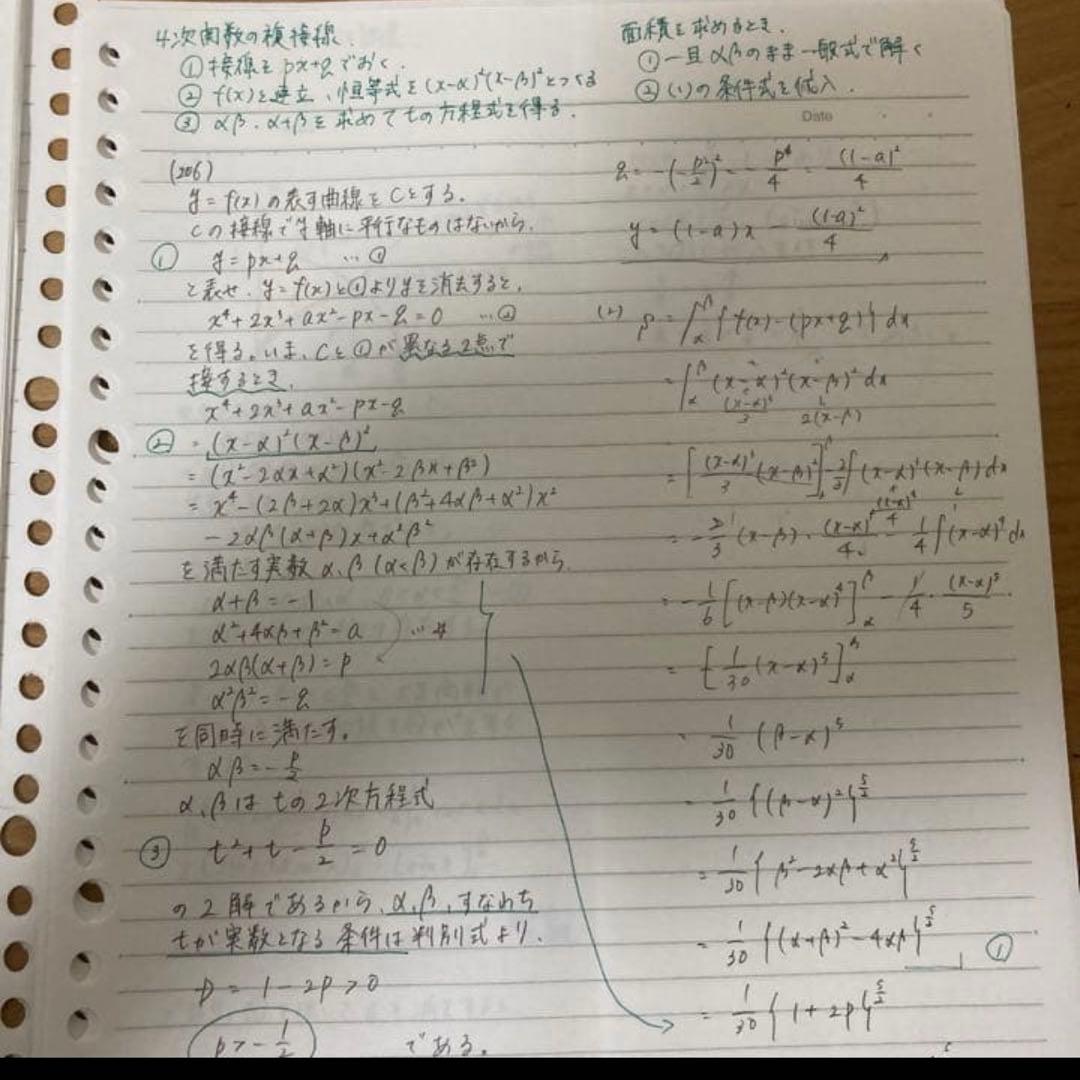 4次関数の複接線.
① 接線を px+q でおく.
② f(x)と連立、恒等式を(x-α)²(x-β)²とつくる
③ αβ、α+βを求めてtの方程式を得る.
(206)
y=f(x)の表す曲線をCとする。
Cの接線でy軸に平行なものはないから、
① y=px+q …①
と表せ、y=f(x)と①よりyを消去すると、
x⁴+2x³+ax²-px-q=0 …②
を得る。いま、Cと①が異なる2点で
接するとき、
x⁴+2x³+ax²-px-q
② =(x-α)²(x-β)²
=(x²-2αx+α²)(x²-2βx+β²)
=x⁴-(2β+2α)x³+(β²+4αβ+α²)x²
-2αβ(α+β)x+α²β²
を満たす実数α、β(α<β)が存在するから
α+β=-1
α²+4αβ+β²=a …
2αβ(α+β)=p
α²β²=-q
を同時に満たす。
αβ=-p/2
α、βはtの2次方程式
③ t²+t-p/2=0
の2解であるから、α、β、すなわち
tが実数となる条件は判別式より、
D=1-2p>0
p>-1/2 である。
面積を求めるとき.
① 一旦αβのまま一般式で解く
② (1)の条件式を代入.
Date
q=-(-p²/2)²=-p⁴/4=(1-a)²/4
y=(1-a)x-(1-a)²/4
(2) S=∫_α^β{f(x)-(px+q)}dx
=∫_α^β(x-α)²(x-β)²dx
(x-α)³/3 2(x-β)
=[(x-α)³/3(x-β)²]-2/3∫(x-α)³(x-β)dx
(x-α)⁴/4 1
=-2/3(x-β)・(x-α)⁴/4-1/4∫(x-α)⁴dx
=-1/6[(x-β)(x-α)⁴]_α^β-1/4・(x-α)⁵/5
=[1/30(x-α)⁵]_α^β
=1/30(β-α)⁵
=1/30{(β-α)²}^{5/2}
=1/30{β²-2αβ+α²}^{5/2}
=1/30{(α+β)²-4αβ}^{5/2} ①
=1/30{1+2p}^{5/2}